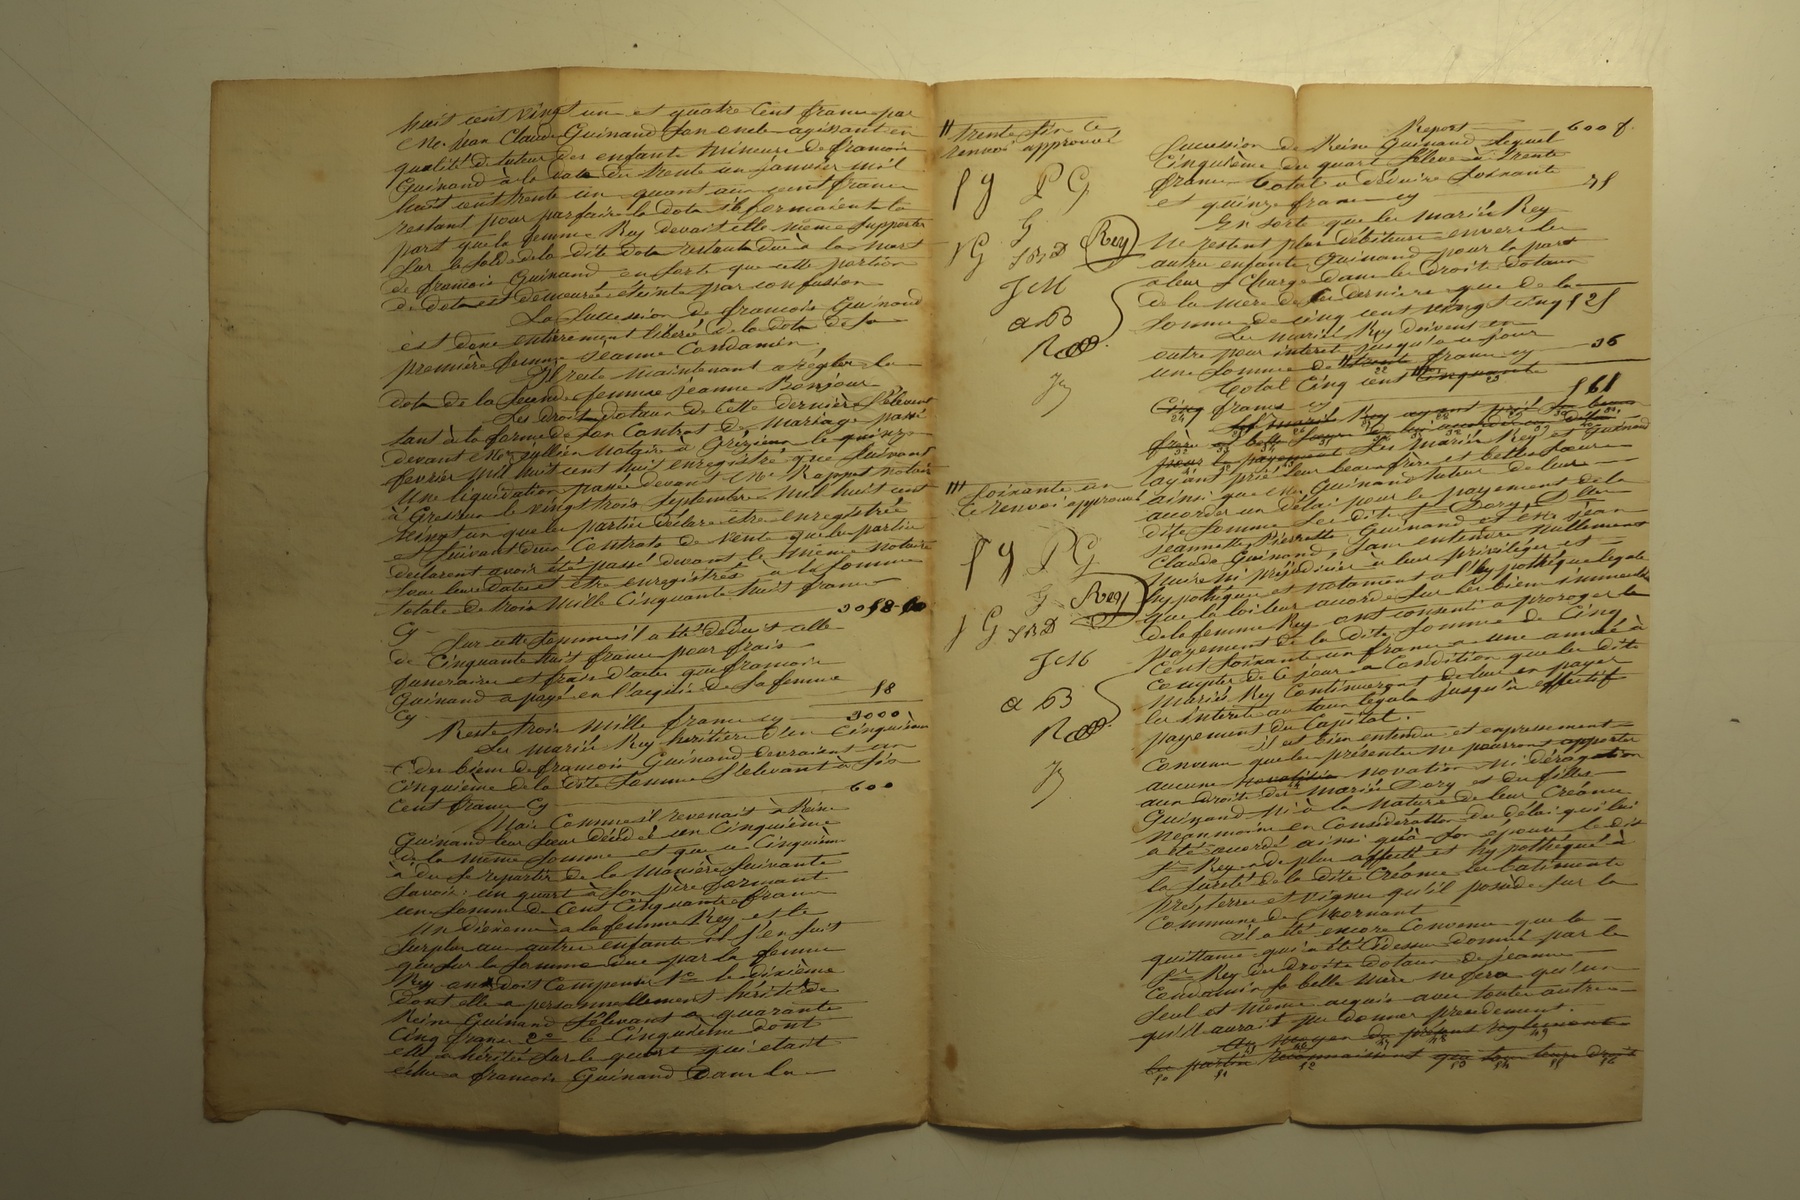 huit cent vingt un et quatre cent francs par
Me Jean Claude Guinand son oncle agissant en
qualité de tuteur des enfants mineurs de françois
Guinand à la date du trente un janvier mil
huit cent trente un quant aux cent francs
restant pour parfaire la dote ils formaient la
part que la femme Rey devait elle même supporter
sur le solde de la dite dote restante due à la mort
de françois Guinand en sorte que cette portion
de dote est demeurée éteinte par confusion
La succession de françois Guinand
est donc entièrement libérée de la dote de sa
première femme Jeanne Condamin.
Il reste maintenant a régler la
dote de la seconde femme jeanne Bonjour
Les droits dotaux de cette dernière s'élevant
tant à la forme de son Contrat de Mariage passé
devant Me notaire à Grézieux le quinze
février mil huit cent huit enregistré que suivant
Une liquidation passée devant Me notaire
à Grezieux le vingt trois septembre mil huit cent
vingt un que les parties déclare être enregistrée
et suivant deux Contrats de vente que les parties
déclarent avoir été passé devant le même notaire
sous leurs dates et être enregistrés à la somme
totale de trois mille Cinquante huit francs
Cy 3058
Sur cette somme il a été déduit celle
de Cinquante huit francs pour frais
funeraires et frais d'actes que francois
Guinand a payé en l'acquit de sa femme
Cy 58
Reste trois mille francs cy 3000
Les mariés Rey héritiers d'un Cinquième
des biens de francois Guinand devraient un
Cinquième de la dite somme s'élevant à six
Cent francs Cy 600
Mais Comme il revenait à Reine
Guinand leur sœur décédée un Cinquième
de la même somme et que ce Cinquième
à du se repartir de la Manière suivante
Savoir: un quart à son père formant
une somme de Cent Cinquante francs
Un dixième à la femme Rey et le
surplus aux autres enfants il s'en suit
que sur la somme due par la femme
Rey on doit Compenser 1° le dixième
dont elle a personnellement hérité de
Reine Guinand s'élevant a quarante
Cinq francs 2° le Cinquième dont
elle a hérité sur le quart qui etait
échu a francois Guinand dans la
" trente six ce
renvoi approuvé
PG
G
Rey
JM
aB
"' soixante un
Ce renvoi approuvé
PG
G
Rey
JM
aB
Report 600 f.
succession de Reine Guinand lequel
Cinquième du quart s'élève à trente
francs Total a déduire soixante
et quinze francs cy 75
En sorte que les mariés Rey
ne restent plus débiteurs envers les
autres enfants Guinand pour la part
a leur Charge dans les droits dotaux
de la mère de ces derniers que de la
somme de cinq cent vingt cinq 525
Les mariés Rey doivent en
outre pour intérêt jusqu'a ce jour
une somme de " trente francs cy 36
Total Cinq cent "' cinquante
Cinq francs cy 561
Les mariés Rey ayant prié
frère et belle sœur
pour le payement Les mariés Rey et Guinand
ayant prié leur beau frère et belles sœurs
ainsi que Me Guinand tuteur de leurs
accorder un délai pour le payement de la
dite somme Les dits Sr Dory, Dlles
Jeannette, Pierrette Guinand et Me jean
Claude Guinand, sans entendre nullement
nuire ni préjudicier à leur privilèges et
hypothèques et notamment a l'hypothèque légale
que la loi leur accorde sur les biens immeubles
de la femme Rey ont consenti a proroger le
payement de la dite somme de Cinq
cent soixante un francs a une année à
compter de ce jour a Condition que les dits
Mariés Rey Continueront de leur en payer
les intérêts au taux légale jusqu'à effectif
payement du Capital.
il est bien entendu et expressement
Convenu que les présentes ne pourront apporter
aucune novation novation ni dérogation
aux droits des mariés Dory et des filles
Guinand ni à la nature de leur Créance
Néanmoins en Considération du délai qui lui
a été accordé ainsi qu'à son épouse le dit
Sr Rey a de plus affecté et hypothéqué à
la sureté de la dite Créance les batiments
prés, terres et vignes qu'il possède sur la
Commune de Mornant
il a été encore Convenu que la
quittance qui a été Cidessus donnée par le
Sr Rey des droits dotaux de jeanne
Condamin sa belle mère ne fera qu'un
seul et même acquis avec toutes autres
qu'il aurait pu donner precedement.
Au moyen du présent reglement
les parties reconnaissent que tous leurs droits